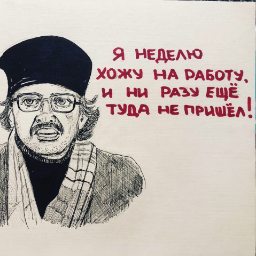 Я НЕДЕЛЮ
ХОЖУ НА РАБОТУ,
И НИ РАЗУ ЕЩЁ
ТУДА НЕ ПРИШЁЛ!